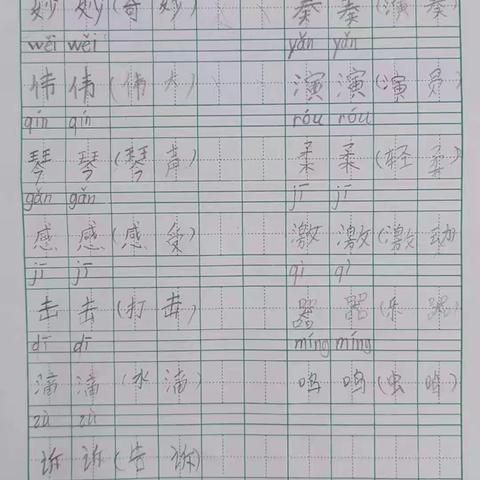 妙 妙(奇 妙) 奏 奏(演 奏)
wěi wěi yǎn yǎn
伟 伟(伟 大) 演 演(演 员)
qín qín róu róu
琴 琴(琴 声) 柔 柔(轻 柔)
gǎn gǎn jī jī
感 感(感 受) 激 激(激 动)
jī jī qì qì
击 击(打 击) 器 器(乐 器)
dī dī míng míng
滴 滴(水 滴) 鸣 鸣(虫 鸣)
zù zù
诉 诉(告 诉)